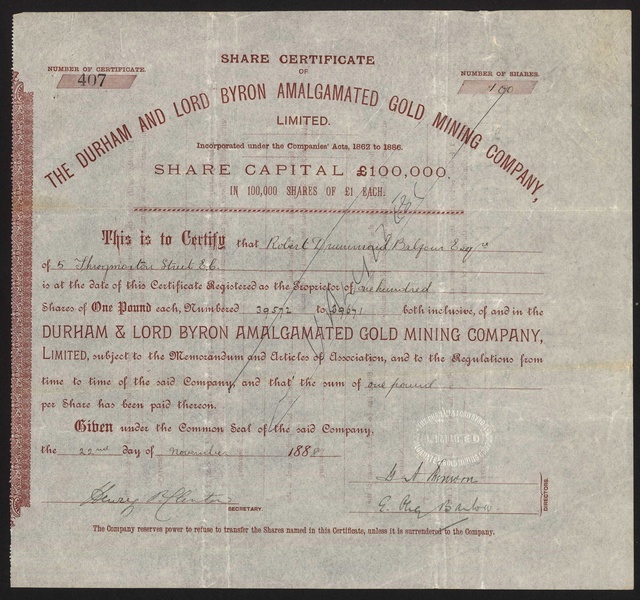 SHARE CERTIFICATE
OF
THE DURHAM AND LORD BYRON AMALGAMATED GOLD MINING COMPANY,
LIMITED.
NUMBER OF CERTIFICATE.
407
NUMBER OF SHARES.
100
Incorporated under the Companies' Acts, 1862 to 1886.
SHARE CAPITAL £100,000.
IN 100,000 SHARES OF £1 EACH.
This is to Certify that Robert Drummond Balfour Esqre
of 5 Throgmorton Street E.C.
is at the date of this Certificate Registered as the Proprietor of one hundred
Shares of One Pound each, Numbered 39572 to 39671 both inclusive, of and in the
DURHAM & LORD BYRON AMALGAMATED GOLD MINING COMPANY,
LIMITED, subject to the Memorandum and Articles of Association, and to the Regulations from
time to time of the said Company, and that the sum of one pound
per Share has been paid thereon.
Given under the Common Seal of the said Company,
the 22nd day of November 1888
LIMITED
Henry
SECRETARY.
Barlow
DIRECTORS.
The Company reserves power to refuse to transfer the Shares named in this Certificate, unless it is surrendered to the Company.